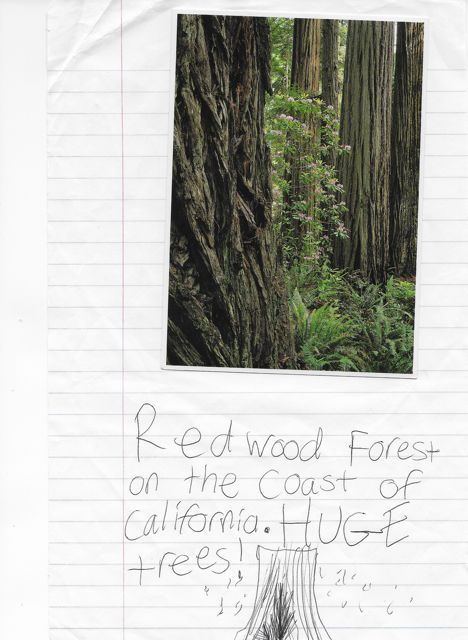 Redwood Forest
on the Coast of
California. HUGE
trees!